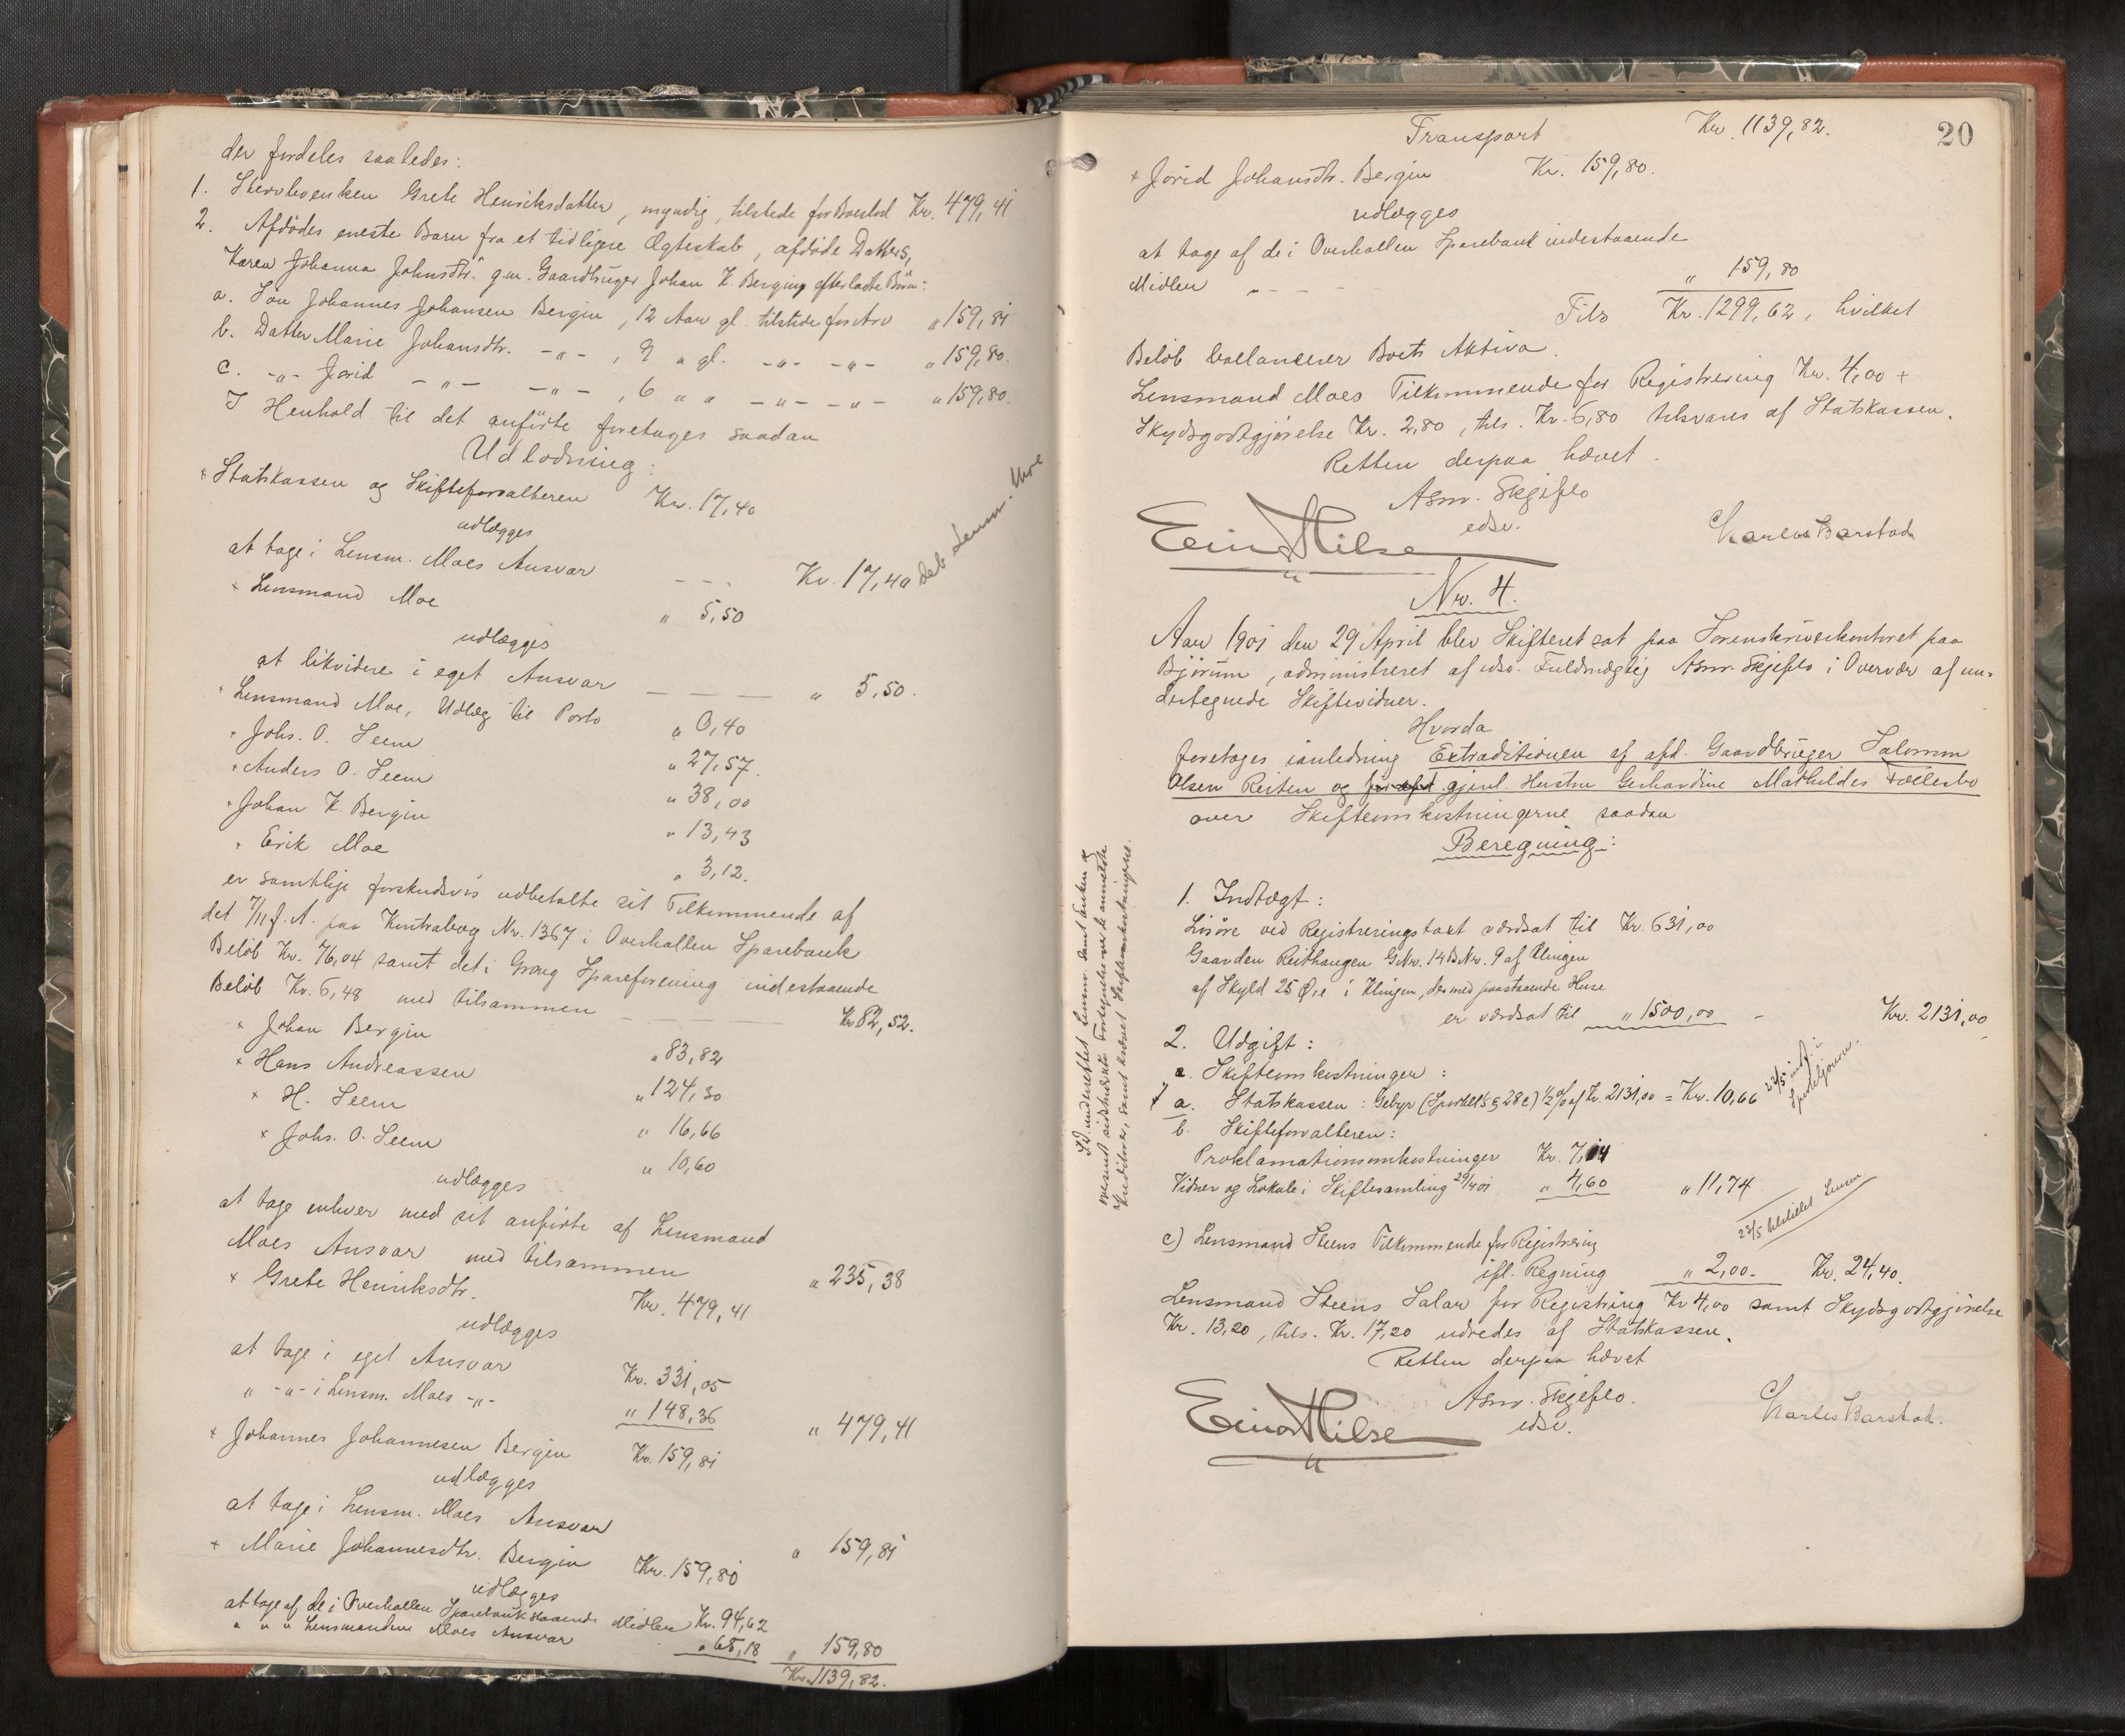 der fordeles saaledes:
1. Stervboenken Grete Henriksdatter, myndig, tilstede for Boeslod Kr. 479,41
2. Afdødes eneste Barn fra et tidligere Ægteskab, afdøde Datters,
Karen Johanna Johnsdtr. g.m. Gaardbruger Johan K. Bergins efterladte Børn:
a. Søn Johannes Johansen Bergin, 12 Aar gl. tilstede for Arv " 159,81
b. Datter Marie Johansdtr. -"- , 9 " gl. -"- -"- " 159,80.
c. -"- Jørid -"- -"- , 6 " " -"- -"- " 159,80.
I Henhold til det anførte foretages saadan
Udlodning:
× Statskassen og Skifteforvalteren Kr. 17,40
udlægges
at tage i Lensm. Moes Ansvar - - - Kr. 17,40 deb. Lensm. Moe
× Lensmand Moe " 5,50
udlægges
at likvidere i eget Ansvar — — — " 5,50.
× Lensmand Moe, Udlæg til Porto " 0,40
× Johs. O. Seem " 27,57.
× Anders O. Seem " 38,00
× Johan K. Bergin " 13,43
× Erik Moe " 3,12.
er samtlige forskudsvis udbetalte sit Tilkommende af
det 7/11 f.A. paa Kontrabog Nr. 1367 i Overhallen Sparebank
Beløb Kr. 76,04 samt det i Grong Spareforening indestaaende
Beløb Kr. 6,48 med tilsammen — — — Kr 82,52.
× Johan Bergin " 83,82
× Hans Andreassen " 124,30
× H. Seem " 16,66
× Johs. O. Seem " 10,60
udlægges
at tage enhver med sit anførte af Lensmand
Moes Ansvar med tilsammen " 235,38
× Grete Henriksdtr. Kr. 479,41
udlægges
at tage i eget Ansvar Kr. 331,05
" -"- i Lensm. Moes -"- " 148,36 " 479,41
× Johannes Johannesen Bergin Kr. 159,81
udlægges
at tage i Lensm. Moes Ansvar " 159,81
× Marie Johannesdtr. Bergin Kr. 159,80
udlægges
at tage af de i Overhallen Sparebank staaende Midler Kr. 94,62
" " " Lensmandens Moes Ansvar " 65,18 " 159,80
Kr. 1139,82.
20
Transport Kr. 1139,82.
× Jørid Johansdtr. Bergin Kr. 159,80.
udlægges
at tage af de i Overhallen Sparebank indestaaende
Midler " - - - " 159,80
Tils Kr. 1299,62, hvilket
Beløb ballancerer Boets Aktiva.
Lensmand Moes Tilkommende for Registrering Kr. 4,00 +
Skydsgodtgjørelse Kr. 2,80, tils. Kr. 6,80 tilsvares af Statskassen.
Retten derpaa hævet.
Asm. Skjeflo
edsv.
Einar Hilse
Charles Barstad
Nr. 4.
Aar 1901 den 29 April blev Skifteret sat paa Sorenskriverkontoret paa
Bjørum, administreret af edsv. Fuldmægtig Asm. Skjeflo i Overvær af un-
dertegnede Skiftevidner.
Hvorda
foretages i anledning Extraditionen af afd. Gaardbruger Salomon
Olsen Reiten og for afd. gjenl. Hustru Gerhardine Mathildes Fællesbo
over Skifteomkostningerne saadan
Beregning:
1. Indtægt:
Løsøre ved Registreringstaxt værdsat til Kr. 631,00
Gaarden Reithaugen GNr. 14 BNr. 9 af Klingen
af Skyld 25 Øre i Klingen, der med paastaaende Huse
er værdsat til " 1500,00 - Kr. 2131,00
2. Udgift:
a. Skifteomkostninger:
a. Statskassen: Gebyr (Sportell. § 28 c) 1/2 % af Kr. 2131,00 = Kr. 10,66 23/5 indf. i Sporteljourn.
b. Skifteforvalteren:
Proklamationsomkostninger Kr. 7,14
Vidner og Lokale i Skiftesamling 29/4 01 " 4,60 " 11,74
23/5 tilstillet Lensm
c) Lensmand Steens Tilkommende for Registrering
ifl. Regning " 2,00. Kr. 24,40.
Lensmand Steens Salar for Registrering Kr 4,00 samt Skydsgodtgjørelse
Kr. 13,20, tils. Kr. 17,20 udredes af Statskassen.
Retten derpaa hævet
Asm. Skjeflo.
edsv.
Einar Hilse
Charles Barstad.
S.D. underrettet Lensm. samt Enken og
Kreditorer, samt krævet Skifteomkostningerne.